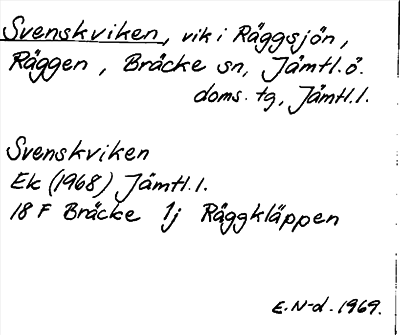 Svenskviken, vik i Räggsjön,
Räggen, Bräcke sn, Jämtl. ö.
doms. tg, Jämtl. l.
Svenskviken
Ek (1968) Jämtl. l.
18 F Bräcke 1j Räggkläppen
E. N-d. 1969.